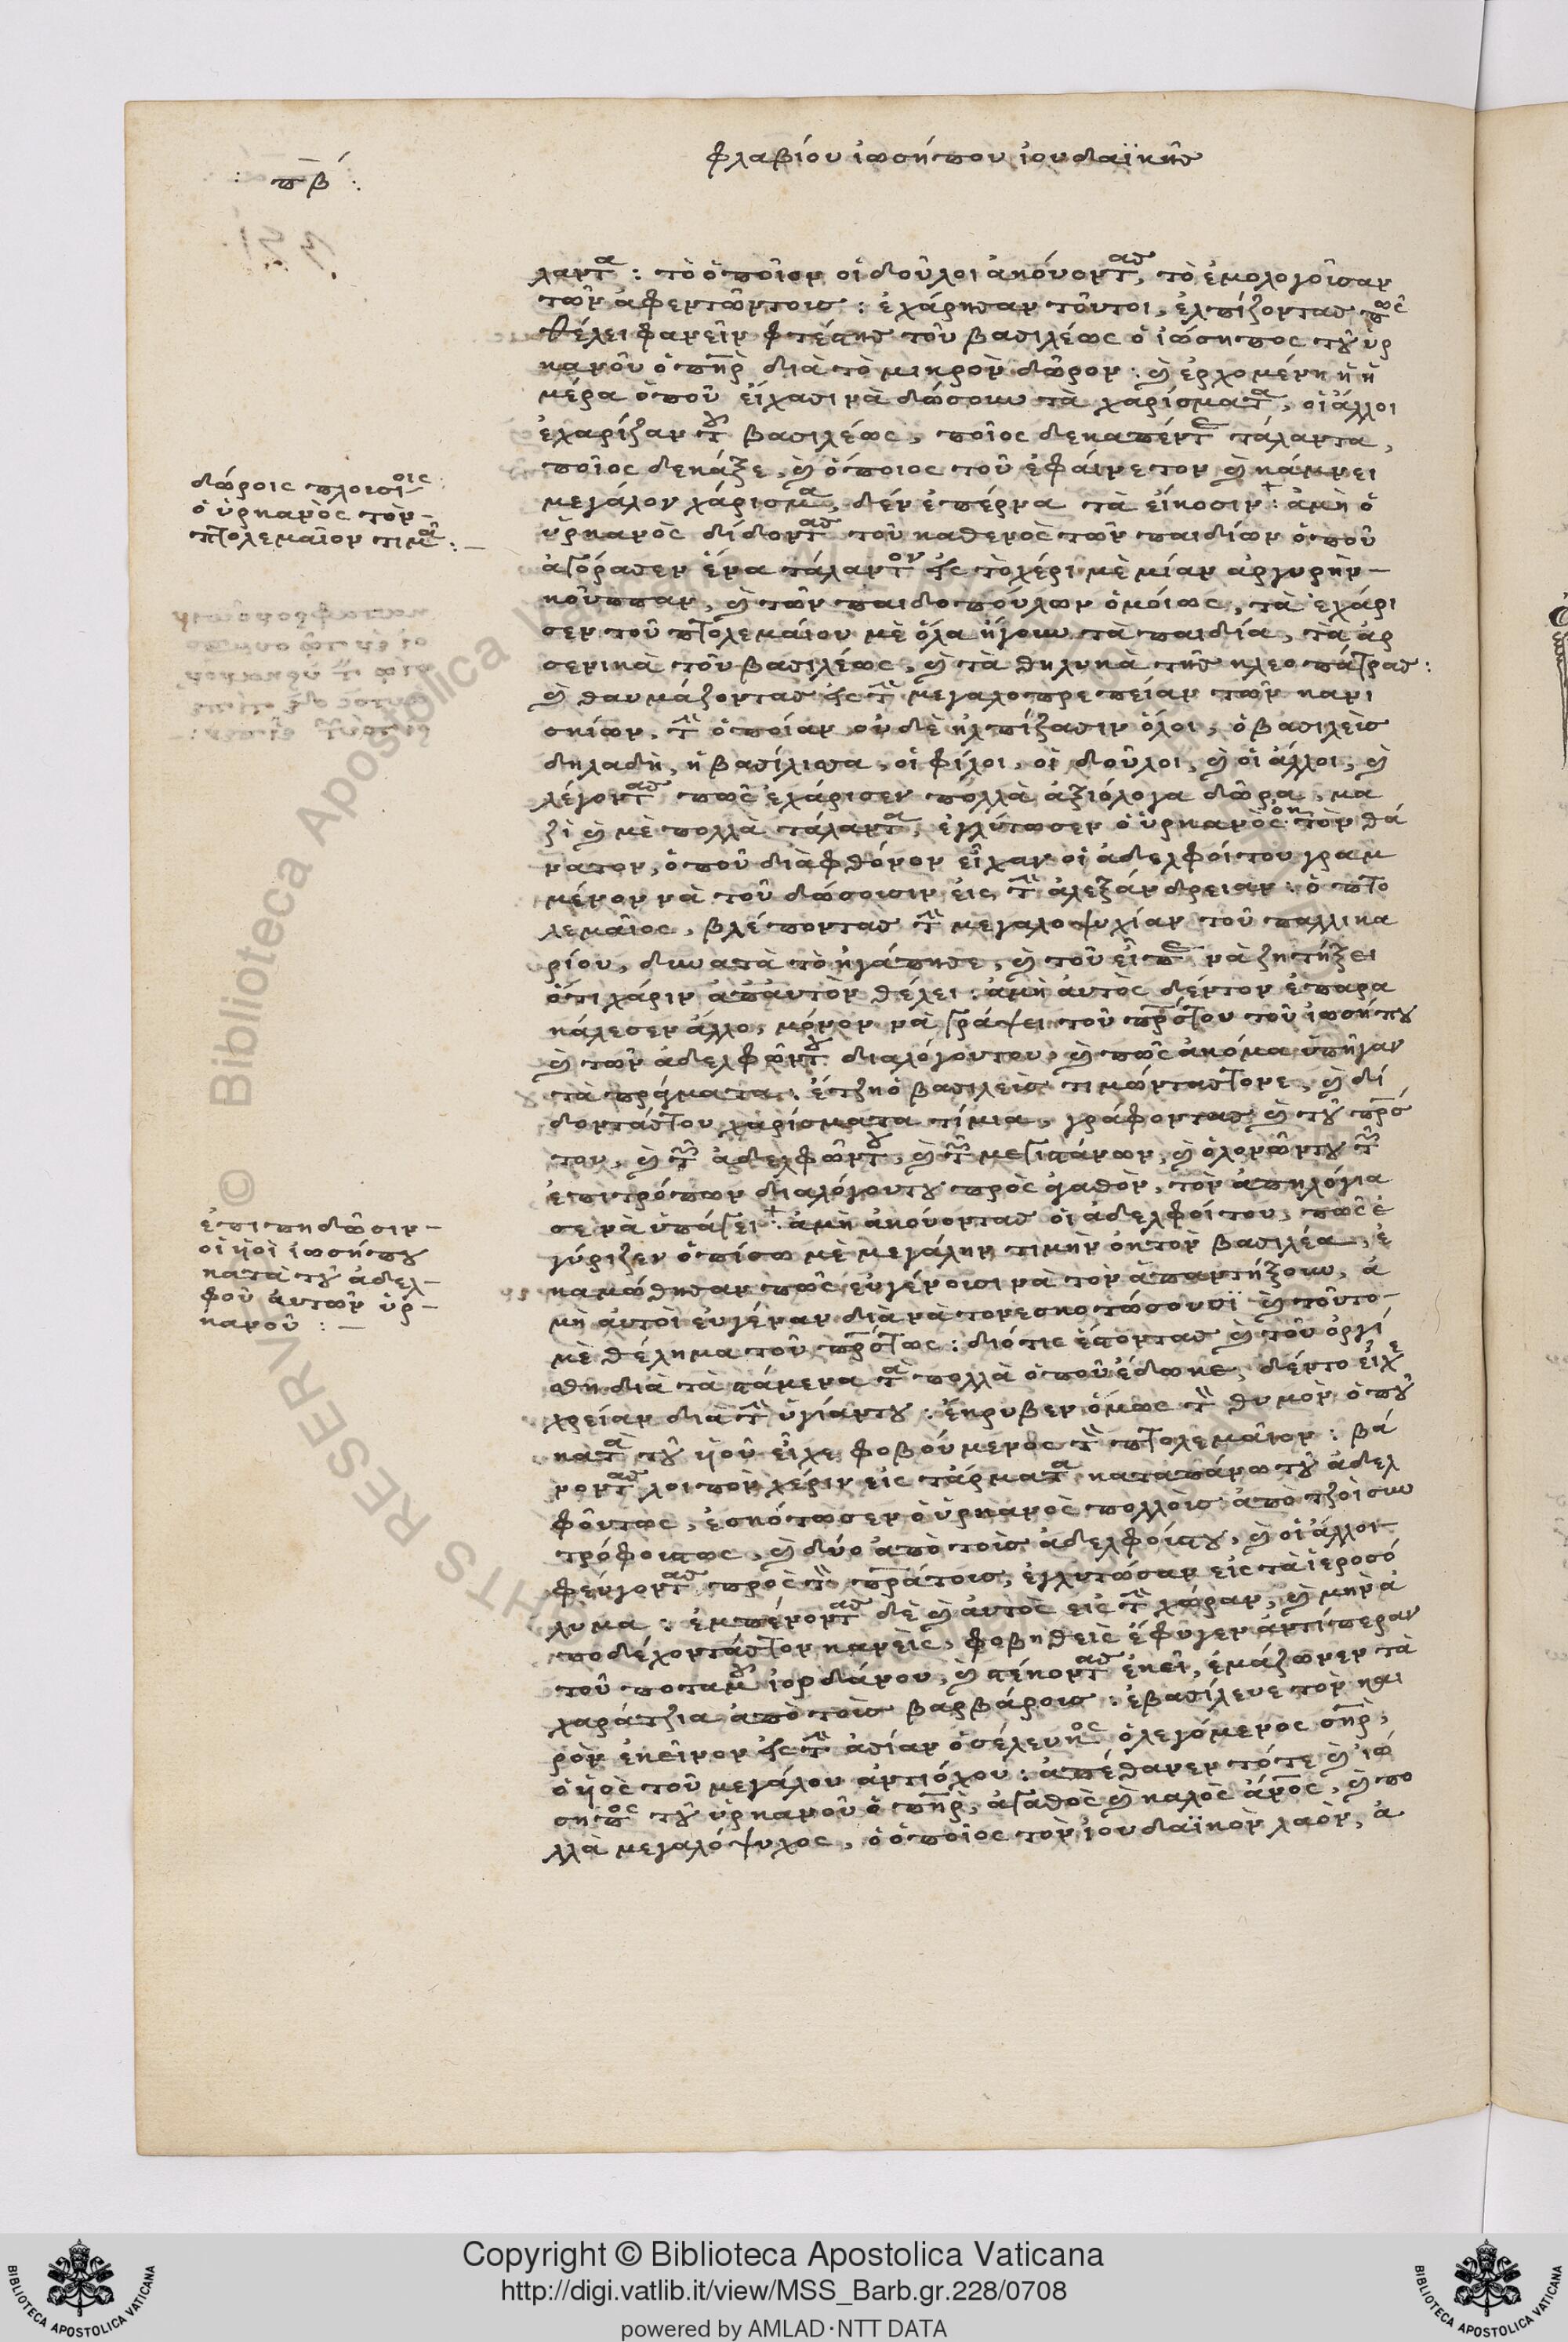 φλαβίου ἰωσήπου ἰουδαϊκῆς
: πβ :
λαντα : τὸ ὁποῖον οἱ δοῦλοι ἀκούοντας, τὸ ἐμολογοῖσαν
τῶν ἀφεντῶντοις : ἐχάρησαν τοῦτοι, ἐλπίζοντας πῶς
θέλει φανεῖν φτέστης τοῦ βασιλέως ὁ ἰώσηπος τοῦ ὑρ
κανοῦ ὁ πηρ διὰ τὸ μικρὸν δῶρον : καὶ ἐρχομένη ἡ ἡ
μέρα ὁποῦ εἴχασι νὰ δώσουν τὰ χαρίσματα, οἱ ἄλλοι
ἐχαρίζαν τοῦ βασιλέως, ποῖος δεκαπέντε τάλαντα,
ποῖος δεκάξε, καὶ ὁποιος τοῦ ἐφαίνετον καὶ κάμνει
μεγάλον χάρισμα, δὲν ἐπέρνα τὰ εἴκοσιν : ἀμὴ ὁ
ὑρκανὸς δίδοντας τοῦ καθενὸς τῶν παιδίων ὁποῦ
ἀγόρασεν ἕνα τάλαντον εἰς τὸ χέρι μὲ μίαν ἀργυρὴν –
κοῦππαν, καὶ τῶν παιδοπούλων ὁμοίως, τὰ ἐχάρι
σεν τοῦ πτολεμαίου μὲ ὅλα ἤγουν τὰ παιδία, τὰ ἀρ
σενικὰ τοῦ βασιλέως, καὶ τὰ θηλυκὰ τῆς κλεοπάτρας :
καὶ θαυμάζοντας εἰς τὴν μεγαλοπρεπείαν τῶν κανι
σκίων, τὴν ὁποίαν οὐδὲ ἠλπίζασιν ὅλοι, ὁ βασιλεὺς
δηλαδὴ, ἡ βασίλισσα, οἱ φίλοι, οἱ δοῦλοι, καὶ οἱ ἄλλοι, καὶ
λέγοντας πῶς ἐχάρισεν πολλὰ ἀξιόλογα δῶρα, μα
ζὶ καὶ μὲ πολλὰ τάλαντα, ἐγλύτωσεν ὁ ὑρκανὸς ἐκ τὸν θά
νατον, ὁποῦ διὰ φθόνον εἶχαν οἱ ἀδελφοί του γραμ
μένον νὰ τοῦ δώσουσιν εἰς τὴν ἀλεξάνδρειαν : ὁ πτο
λεμαῖος, βλέποντας τὴν μεγαλοψυχίαν τοῦ παλλικα
ρίου, δυνατὰ τὸ ἠγάπησε, καὶ τοῦ εἶπε νὰ ζητήξει
ὅτι χάριν ἀπαυτὸν θέλει : ἀμὴ αὐτὸς δέντον ἐπαρα
κάλεσεν ἄλλο, μόνον νὰ γράψει τοῦ πρστου τοῦ ἰωσήπου
καὶ τῶν ἀδελφῶντου διαλόγουντου, καὶ πῶς ἀκόμα ὑπῆγαν
τὰ πράγματα : ἔτζη ὁ βασιλεὺς τιμώντας τονε, καὶ δί
δοντάς του χαρίσματα τίμια, γράφοντας καὶ τοῦ πρσ
του, καὶ τῶν ἀδελφῶντου, καὶ τῶν μεγιτάνων, καὶ ὁλονῶντου τῶν
ἐπιτρόπων διαλόγουντου πρὸς ἀγαθὸν, τὸν ἀπηλόγια
σε νὰ ὑπάγει : ἀμὴ ἀκούοντας οἱ ἀδελφοί του, πῶς ἐ
γύριζεν ὀπίσω μὲ μεγάλην τιμὴν ἐκ τὸν βασιλέα, ἐ
καμώθησαν πῶς εὐγένουσι νὰ τὸν ἀπαντήξουν, ἀ
μὴ αὐτοὶ εὐγέναν διὰ νὰ τονε σκοτώσουσϊ καὶ τοῦτο –
μὲ θέλημα τοῦ πρστως : διότις ἔστοντας καὶ τοῦ ὀργί
σθη διὰ τὰ τάνερα τὰ πολλὰ ὁποῦ ἔδωκε, δέντο εἶχε
χρείαν διὰ τὴν ὑγίαντου : ἔκρυβεν ὅμως τὸν θυμὸν ὁποῦ
κατὰ τοῦ ἡοῦ εἶχε, φοβούμενος τὸν πτολεμαῖον : βά
νοντας λοιπὸν χέριν εἰς τάρματα καταπάνω τοῦ ἀδελ
φοῦντως, ἐσκότωσεν ὁ ὑρκανὸς πολλοὺς ἀπὸ τζοὶ συν
τρόφουςτως, καὶ δύο ἀπὸ τοὺς ἀδελφούςτου, καὶ οἱ ἄλλοι
φεύγοντας πρὸς τὸν πρατους, ἐγλυτώσαν εἰς τὰ ἱεροσό
λυμα : ἐμπένοντας δὲ καὶ αὐτὸς εἰς τὴν χώραν, καὶ μὴν ἀ
ποδέχοντάς τον κανεὶς, φοβηθεὶς ἔφυγεν ἀντίπεραν
τοῦ ποταμοῦ ἰορδάνου, καὶ στέκοντας ἐκεῖ, ἐμάζωνεν τὰ
χαράτζια ἀπὸ τοὺς βαρβάρους : ἐβασίλευε τὸν και
ρὸν ἐκεῖνον εἰς τὴν ἀσίαν ὁ σέλευκος ὁ λεγόμενος σηρ,
ὁ ἡὸς τοῦ μεγάλου ἀντιόχου : ἀπέθανεν τότε καὶ ἰώ
σηπος τοῦ ὑρκανοῦ ὁ πηρ, ἀγαθὸς καὶ καλὸς ἄνος, καὶ πο
λλὰ μεγαλόψυχος, ὁ ὁποῖος τὸν ἰουδαϊκὸν λαὸν, ἀ
δώροις πλουσίοις
ὁ ὑρκανὸς τὸν –
πτολεμαῖον τιμᾶ : –
ἐπιπηδῶσιν –
οἱ ἡοὶ ἰωσήπου
κατὰ τοῦ ἀδελ –
φοῦ αὐτῶν ὑρ –
κανοῦ : –
© Biblioteca Apostolica Vaticana
RIGHTS RESERVED
Copyright © Biblioteca Apostolica Vaticana
http://digi.vatlib.it/view/MSS_Barb.gr.228/0708
powered by AMLAD·NTT DATA
BIBLIOTECA APOSTOLICA VATICANA
BIBLIOTECA APOSTOLICA VATICANA